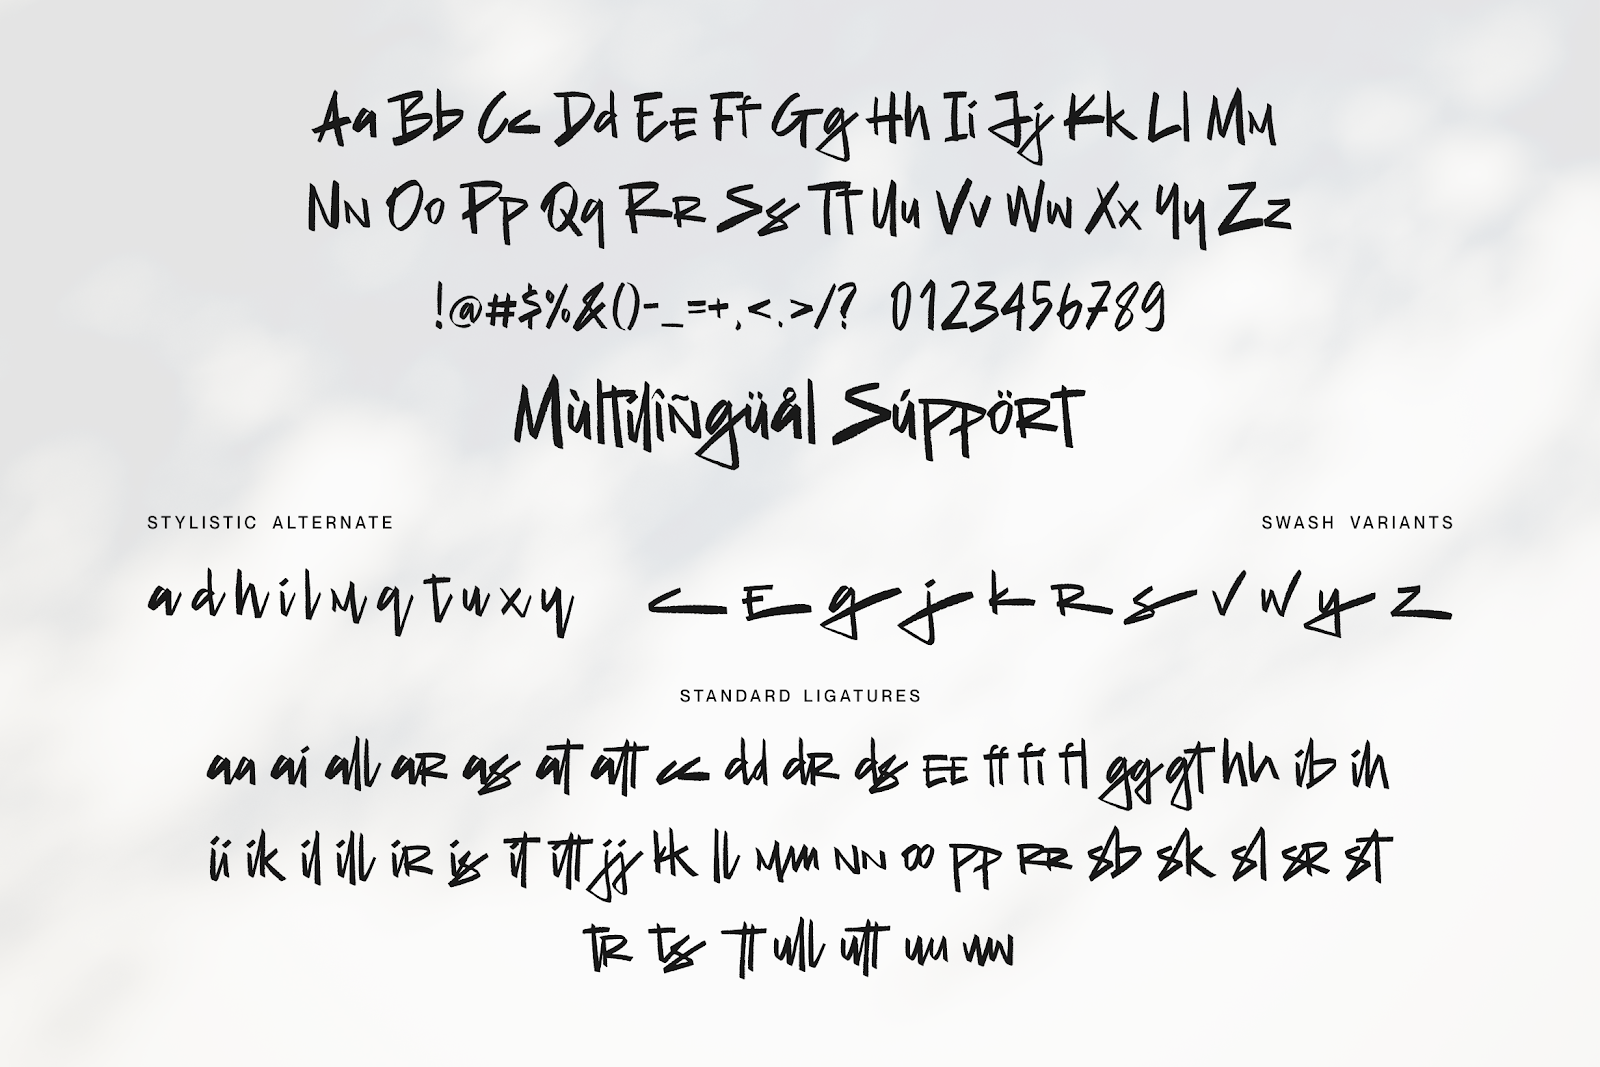 Aa Bb Cc Dd Ee Ff Gg Hh Ii Jj Kk Ll Mm
Nn Oo Pp Qq Rr Ss Tt Uu Vv Ww Xx Yy Zz
!@#$%&()-_=+,<.>/? 0123456789
Mùltílîñgüål Súppört
STYLISTIC ALTERNATE
SWASH VARIANTS
a d h i l m q t u x y
c e g j k r s v w y z
STANDARD LIGATURES
aa ai all ar as at att cc dd dr ds ee ff fi fl gg gt hh ib ih
ii ik il ill ir is it itt jj kk ll mm nn oo pp rr sb sk sl sr st
tr ts tt ull utt uu ww